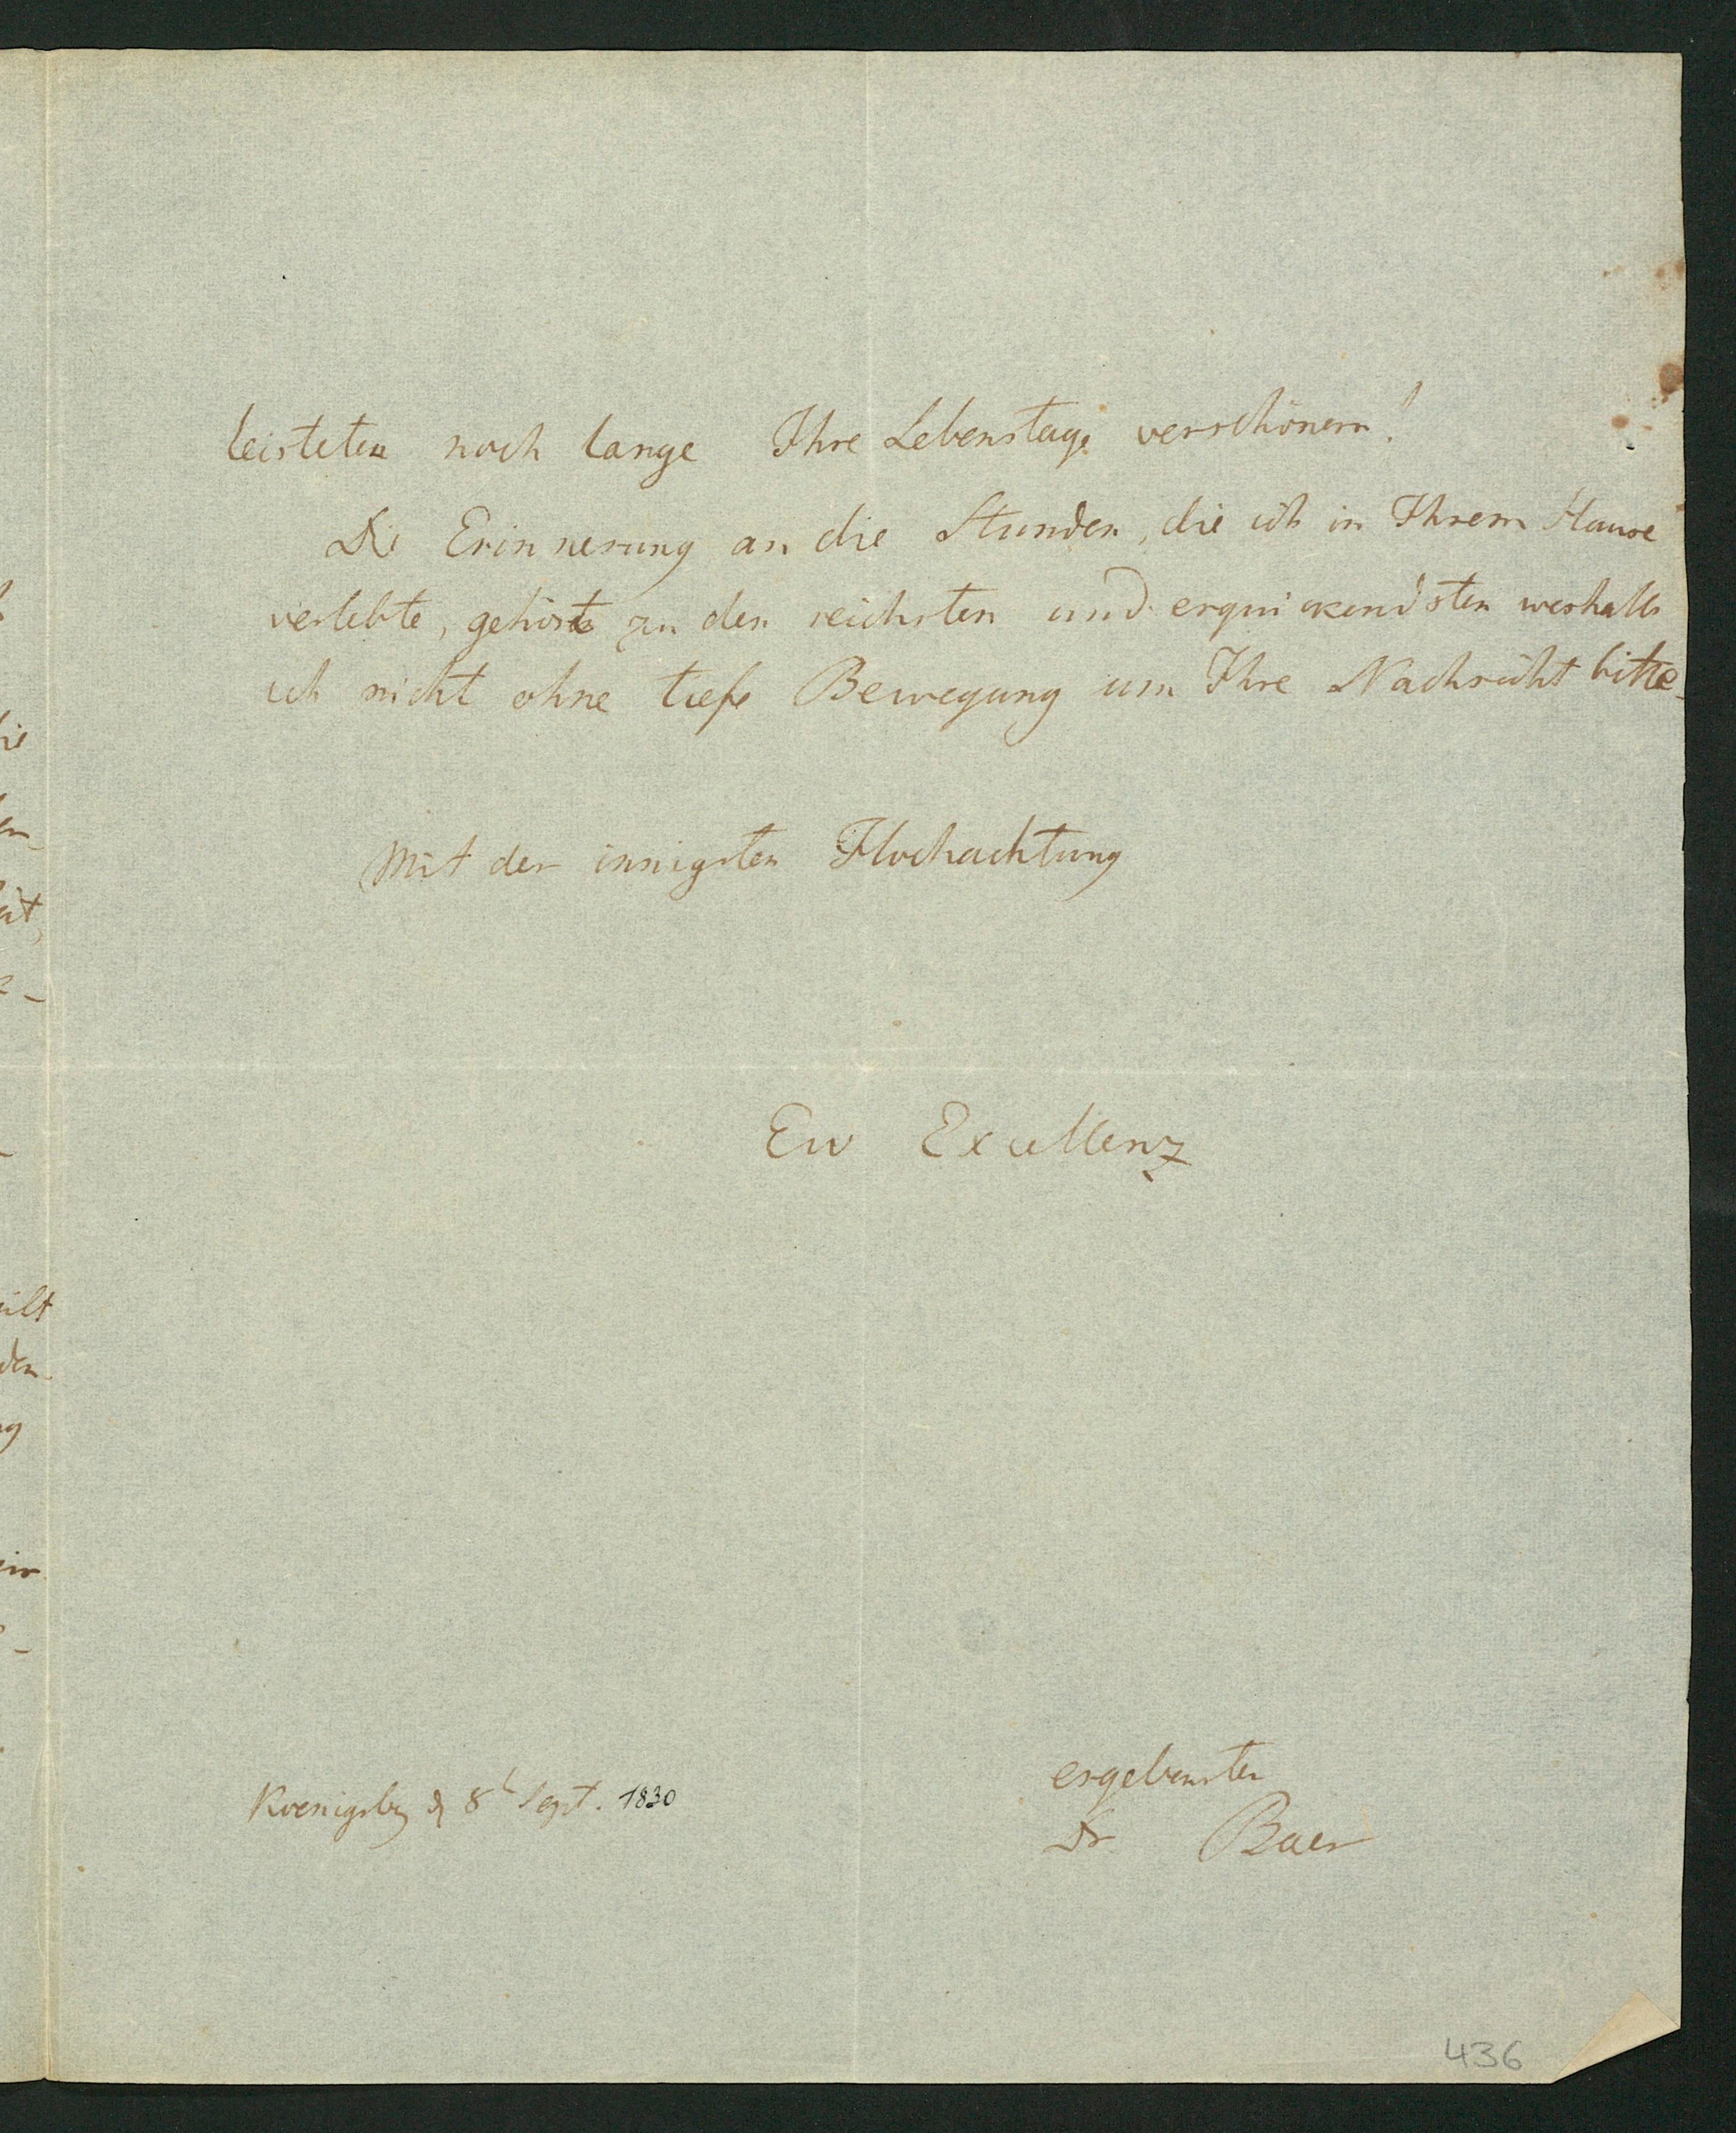 leisteten noch lange Ihre Lebenstage verschönern!
Die Erinnerung an die Stunden, die ich in Ihrem Hause
verlebte, gehört zu den reichsten und erquickendsten weshalb
ich nicht ohne tiefe Bewegung um Ihre Nachricht bitte
Mit der innigsten Hochachtung
Ew Excellenz
ergebenster
Koenigsbg d 8t Sept. 1830
Dr Baer
436